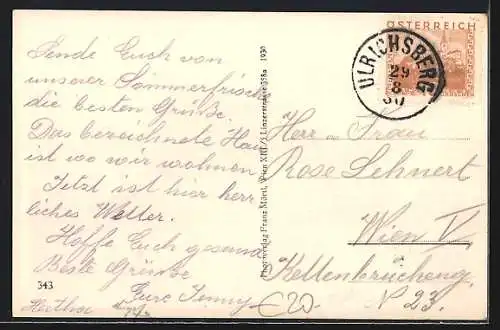 Sende Euch von
unserer Sommerfrische
die besten Grüße.
Das bezeichnete Haus
ist wo wir wohnen
Jetzt ist hier herr
liches Wetter.
Hoffe Euch gesund
Beste Grüße
Eure Jenny
343
Franz Mörtl, Wien XIII/ Linzerstrasse 1930
ÖSTERREICH
ULRICHSBERG
29
8
30
Herr Frau
Rose Lehnert
Wien V
Kettenbrückeng.
N 23.
€20